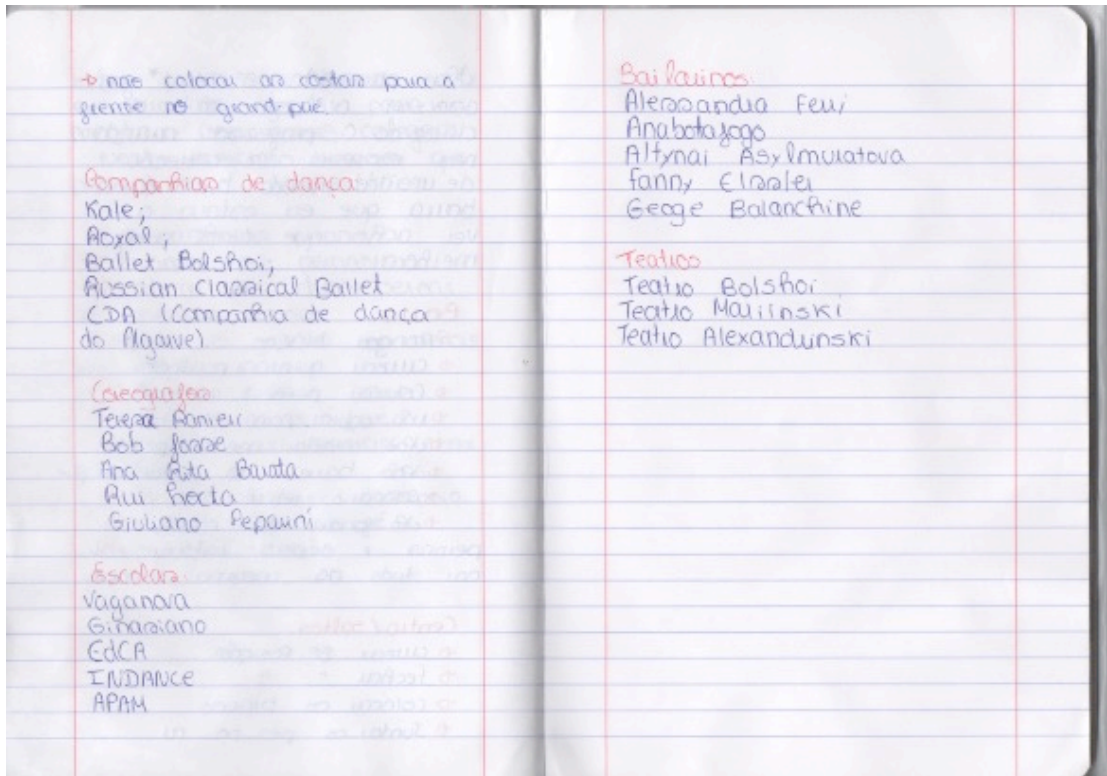 → não colocar as costas para a
frente no grand-plié.
Companhias de dança
Kale;
Royal;
Ballet Bolshoi;
Russian Classical Ballet
CDA (Companhia de dança
do Algarve)
Coreógrafos
Teresa Ranieri
Bob fosse
Ana Rita
Rui
Giuliano Peparini
Escolas
Vaganova
Ginasiano
EdCA
INDANCE
APAM
Bailarinos
Alessandra Ferri
Anabotafogo
Altynai Asylmuratova
Fanny Elssler
George Balanchine
Teatros
Teatro Bolshoi
Teatro Mariinski
Teatro Alexandrinski